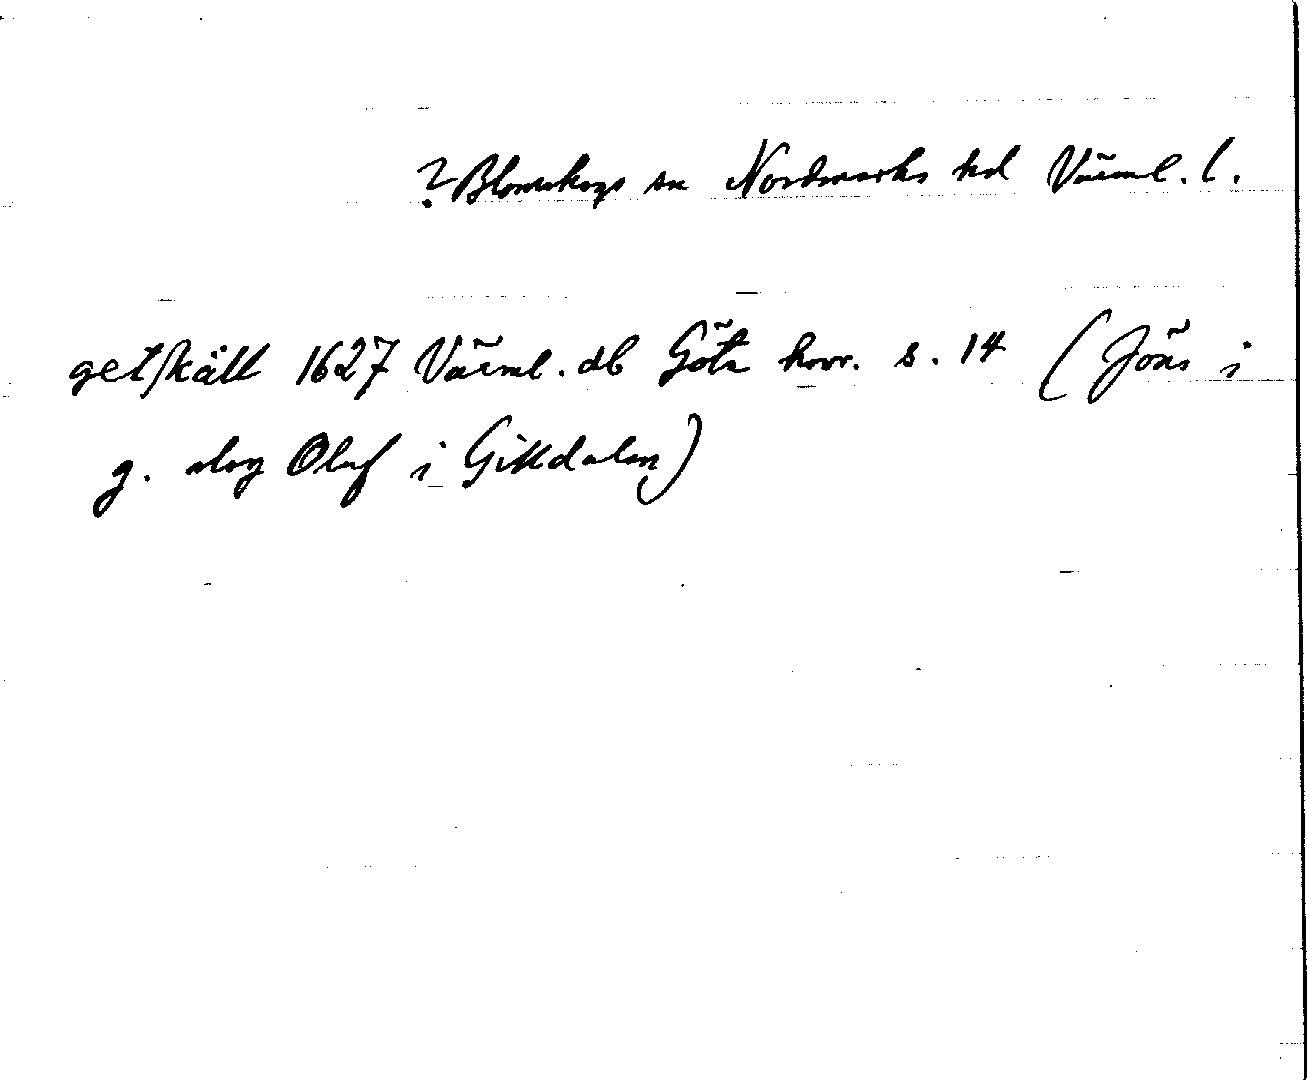 ? Blomskogs sn Nordmarks hd Värml. l.
getſkäll 1627 Värml. db Göta hovr. s. 14 (Jöns i
g. slog Oluf i Gilldalen)